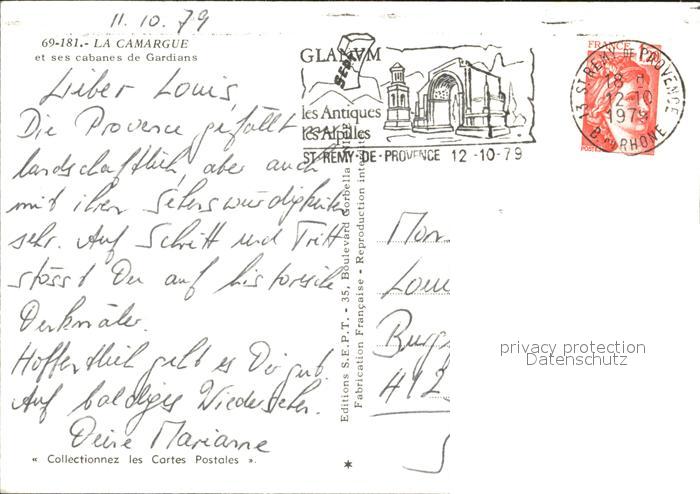 11.10.79
69-181.- LA CAMARGUE
et ses cabanes de Gardians
Lieber Louis,
Die Provence gefällt
landschaftlich, aber auch
mit ihren Sehenswürdigkeiten
sehr. Auf Schritt und Tritt
stösst Du auf historische
Denkmäler.
Hoffentlich geht es Dir gut.
Auf baldiges Wiedersehen.
Deine Marianne
« Collectionnez les Cartes Postales ».
Editions S.E.P.T. - 35, Boulevard Gorbella
Fabrication Française - Reproduction
GLANVM
SEPT
les Antiques
les Alpilles
ST-REMY-DE-PROVENCE 12-10-79
FRANCE
POSTES
13 ST REMY DE PROVENCE
18 H
12-10
1979
B. DU RHONE
Mon
Loui
Burg
412
privacy protection
Datenschutz